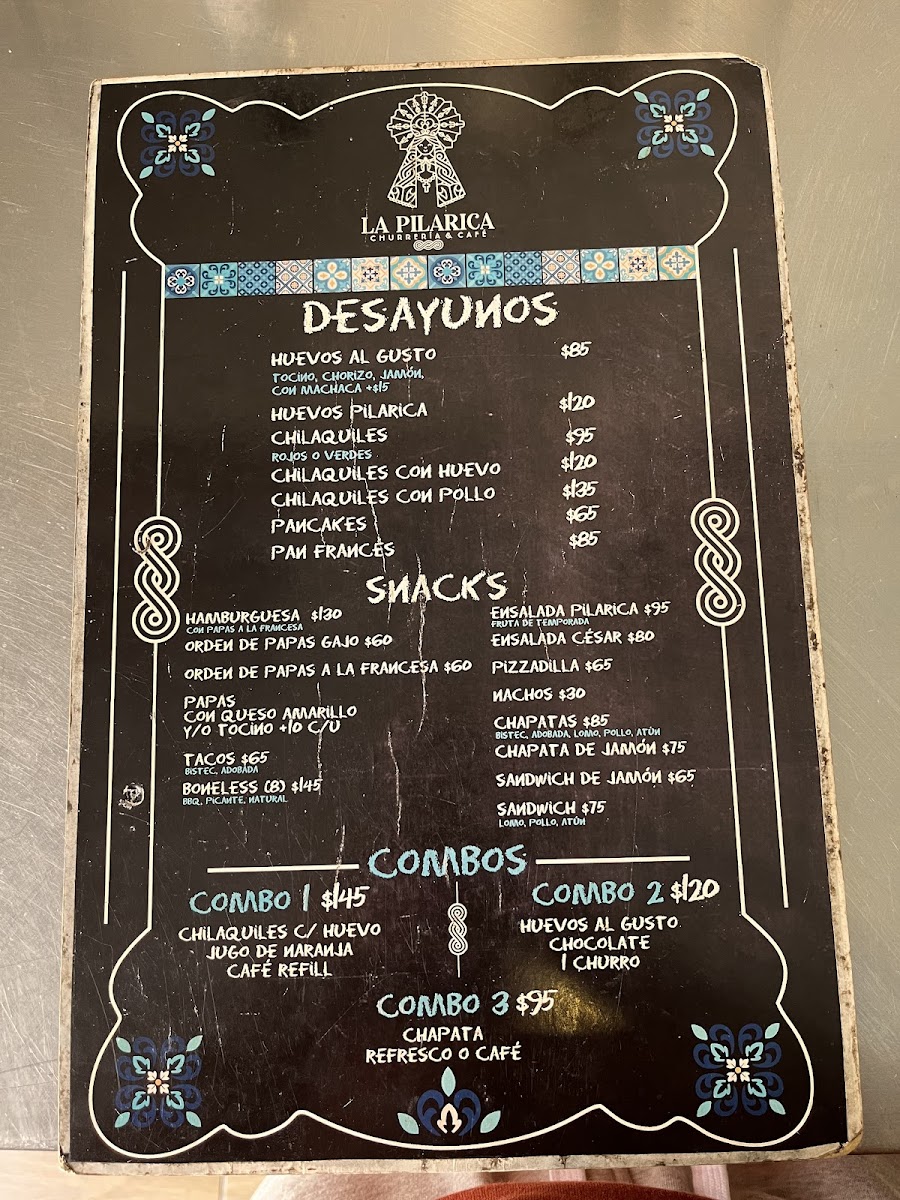 LA PILARICA
CHURRERÍA & CAFÉ
DESAYUNOS
HUEVOS AL GUSTO $85
TOCINO, CHORIZO, JAMÓN,
CON MACHACA +$15
HUEVOS PILARICA $120
CHILAQUILES $95
ROJOS O VERDES
CHILAQUILES CON HUEVO $120
CHILAQUILES CON POLLO $135
PANCAKES $65
PAN FRANCÉS $85
SNACKS
HAMBURGUESA $130
CON PAPAS A LA FRANCESA
ORDEN DE PAPAS GAJO $60
ORDEN DE PAPAS A LA FRANCESA $60
PAPAS
CON QUESO AMARILLO
Y/O TOCINO +10 C/U
TACOS $65
BISTEC, ADOBADA
BONELESS (8) $145
BBQ, PICANTE, NATURAL
ENSALADA PILARICA $95
FRUTA DE TEMPORADA
ENSALADA CÉSAR $80
PIZZADILLA $65
NACHOS $30
CHAPATAS $85
BISTEC, ADOBADA, LOMO, POLLO, ATÚN
CHAPATA DE JAMÓN $75
SANDWICH DE JAMÓN $65
SANDWICH $75
LOMO, POLLO, ATÚN
COMBOS
COMBO 1 $145
CHILAQUILES C/ HUEVO
JUGO DE NARANJA
CAFÉ REFILL
COMBO 2 $120
HUEVOS AL GUSTO
CHOCOLATE
1 CHURRO
COMBO 3 $95
CHAPATA
REFRESCO O CAFÉ